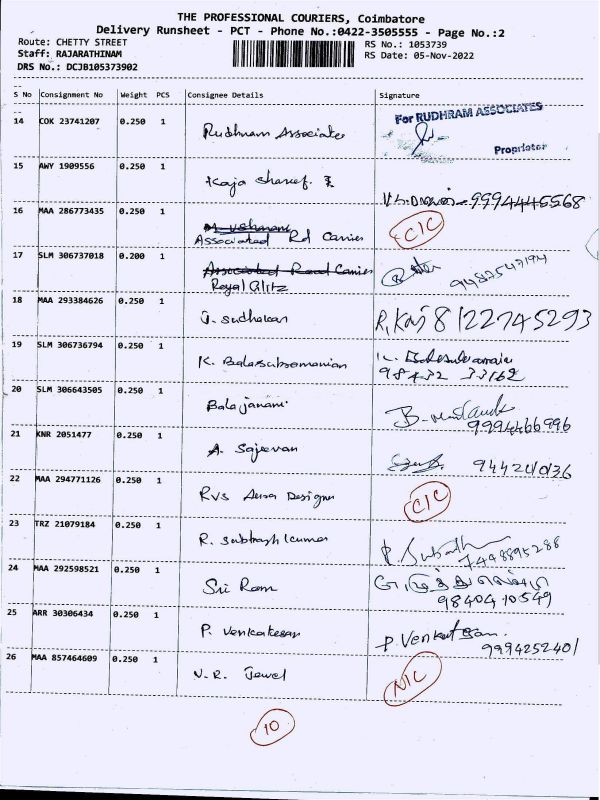 THE PROFESSIONAL COURIERS, Coimbatore
Delivery Runsheet - PCT - Phone No.:0422-3505555 - Page No.:2
Route: CHETTY STREET
RS No.: 1053739
Staff: RAJARATHINAM
RS Date: 05-Nov-2022
DRS No.: DCJB105373902
S No Consignment No Weight PCS Consignee Details Signature
14 COK 23741207 0.250 1 Rudhram Associates
For RUDHRAM ASSOCIATES
Proprietor
15 AWY 1909556 0.250 1 Kaja Shareef. I
9994445568
16 MAA 286773435 0.250 1
Associated Rd Carrier C/C
17 SLM 306737018 0.200 1 Associated Road Carrier
Royal Glitz 9487547194
18 MAA 293384626 0.250 1 J. Sudhakar R, Kaj 8122745293
19 SLM 306736794 0.250 1 K. Balasubramanian
98432 33162
20 SLM 306643505 0.250 1 Balajanani
9994466996
21 KNR 2051477 0.250 1 A. Sajeevan 9442410136
22 MAA 294771126 0.250 1 RVS Aura Designer C/C
23 TRZ 21079184 0.250 1 R. Subhash kumar
7448895288
24 MAA 292598521 0.250 1 Sri Ram
9840410549
25 ARR 30306434 0.250 1 P. Venkatesan P Venkatesan.
9994252401
26 MAA 857464609 0.250 1 V.R. Jewel N/C
10